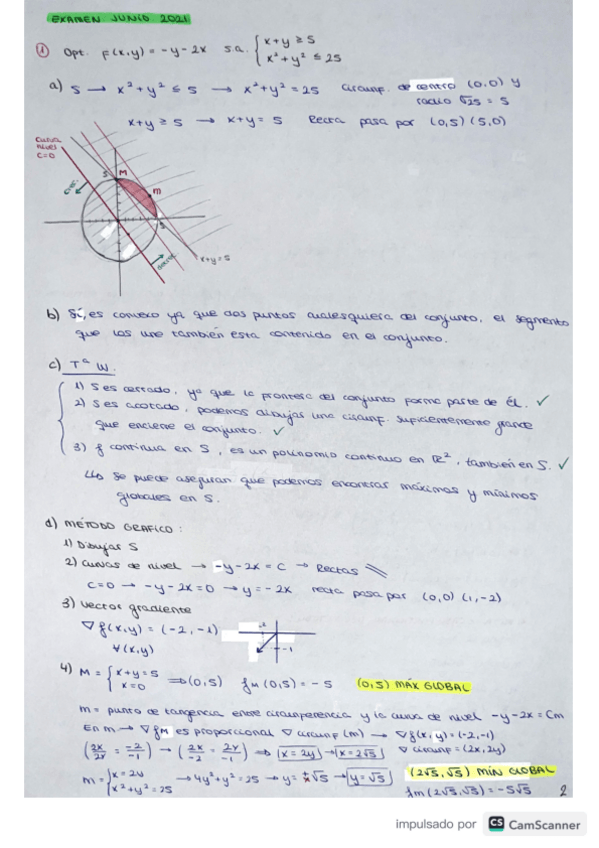 EXAMEN JUNIO 2021
1 Opt. f(x,y) = -y-2x s.a. { x+y ≥ 5
x² + y² ≤ 25
a) S → x² + y² ≤ 5 → x² + y² = 25 circunf. de centro (0,0) y
radio √25 = 5
x+y ≥ 5 → x+y = 5 Recta pasa por (0,5) (5,0)
curva
nivel
C=0
5 M
m
5
x+y=5
b) Sí, es convexo ya que dos puntos cualesquiera del conjunto, el segmento
que los une también esta contenido en el conjunto.
c) Tª W.
1) S es cerrado, ya que la frontera del conjunto forma parte de él. ✓
2) S es acotado, podemos dibujar una circunf. suficientemente grande
que encierre el conjunto. ✓
3) f continua en S, es un polinomio continuo en ℝ², también en S. ✓
↳ se puede aseguran que podemos encontrar máximos y mínimos
globales en S.
d) MÉTODO GRAFICO:
1) Dibujar S
2) Curvas de nivel → -y-2x = C → Rectas
C=0 → -y-2x=0 → y=-2x recta pasa por (0,0) (1,-2)
3) Vector gradiente
∇f(x,y) = (-2,-1)
∀(x,y)
-2
-1
4) M = { x+y=5
x=0 ⇒ (0,5) fM(0,5) = -5 (0,5) MÁX GLOBAL
m = punto de tangencia entre circunferencia y la curva de nivel -y-2x = Cm
En m → ∇fM es proporcional ∇ circunf (m) → ∇f(x,y) = (-2,-1)
(2x/2y = -2/-1) → (2x/-2 = 2y/-1) ⇒ x=2y → x=2√5 ∇ circunf = (2x,2y)
m = { x=2y
x²+y²=25 → 4y²+y²=25 → y=±√5 → y=√5 (2√5,√5) MÍN GLOBAL
fm(2√5,√5) = -5√5 2
impulsado por CS CamScanner